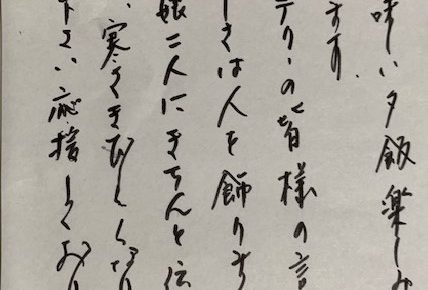 味しい夕飯楽しみ
ます。
テリーの皆様の言
しさは人を飾りま
娘二人にきちんと伝
、寒さきびしくなり
下さい応援しており